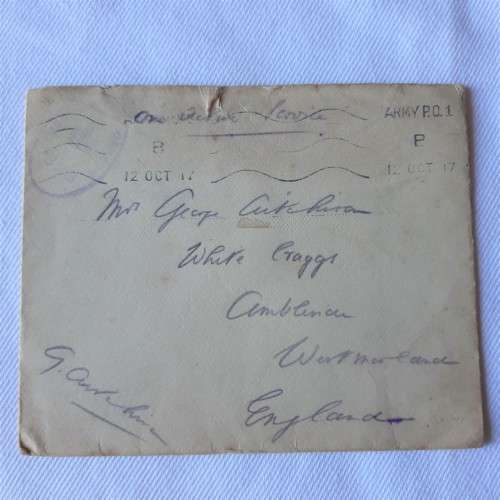 On Active Service
ARMY P.O. 1
B B
12 OCT 17 12 OCT 17
Mrs George Aitchison
White Craggs
Ambleside
Westmorland
England
G. Aitchison